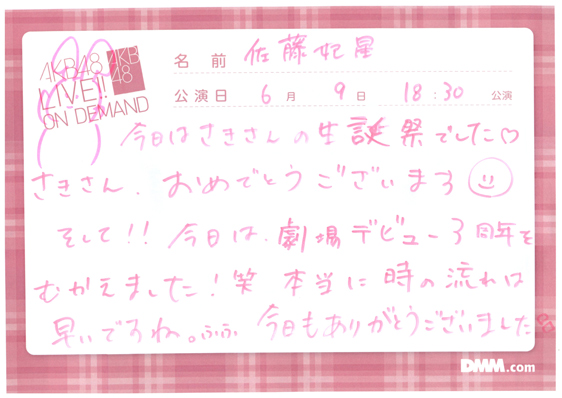 AKB48
LIVE!!
ON DEMAND
AKB
48
名前 佐藤妃星
公演日 6月 9日 18:30 公演
今日はさきさんの生誕祭でした♡
さきさん、おめでとうございます
そして!! 今日は、劇場デビュー3周年を
むかえました!笑 本当に時の流れは
早いですね。ふふ 今日もありがとうございました
DMM.com